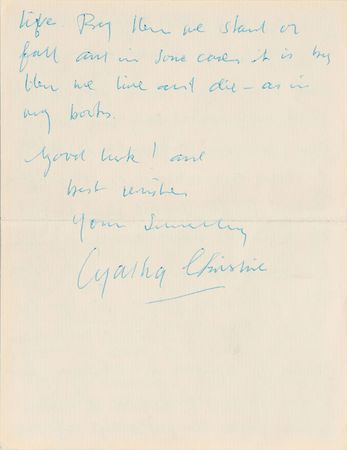 life. By them we stand or
fall and in some cases it is by
them we live and die – as in
my books.
Good luck! and
best wishes
Yours Sincerely
Agatha Christie